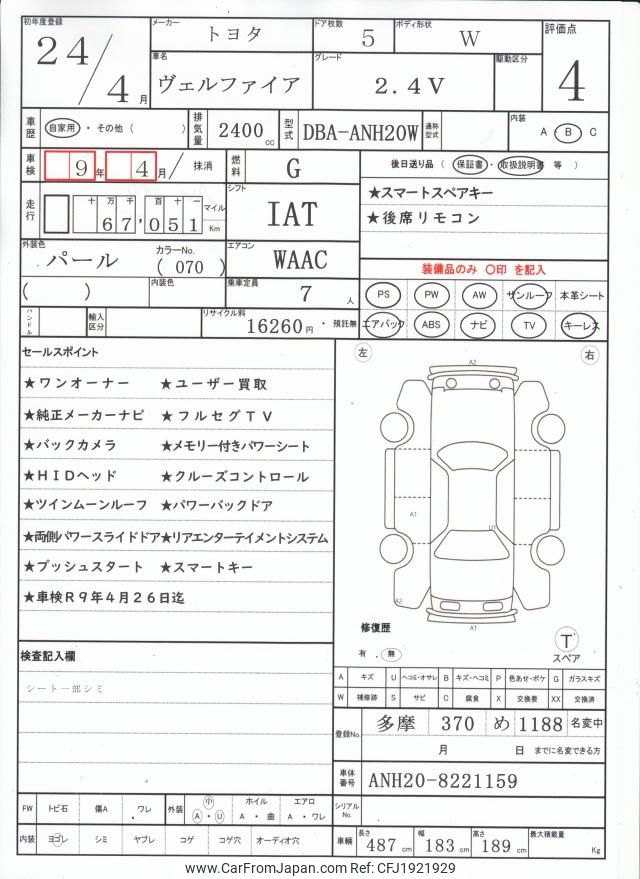 初年度登録
24/4月
メーカー トヨタ
ドア枚数 5
ボディ形状 W
評価点 4
車名 ヴェルファイア
グレード 2.4V
駆動区分
車歴 自家用・その他( )
排気量 2400cc
型式 DBA-ANH20W
通称型式
内装 A・B・C
車検 9年4月/抹消
燃料 G
後日送り品(保証書・取扱説明書 等)
★スマートスペアキー
★後席リモコン
走行 十万千百十一 67,051 マイル Km
シフト IAT
外装色 パール
カラーNo. (070)
エアコン WAAC
装備品のみ 〇印 を記入
( )
内装色
乗車定員 7人
PS PW AW サンルーフ 本革シート
エアバック ABS ナビ TV キーレス
ハンドル
輸入区分
リサイクル料 16260円・預託無
セールスポイント
★ワンオーナー ★ユーザー買取
★純正メーカーナビ ★フルセグTV
★バックカメラ ★メモリー付きパワーシート
★HIDヘッド ★クルーズコントロール
★ツインムーンルーフ ★パワーバックドア
★両側パワースライドドア★リアエンターテイメントシステム
★プッシュスタート ★スマートキー
★車検R9年4月26日迄
左 右
A2
A1
U1
A2
A1
修復歴
有.無
T
スペア
検査記入欄
シート一部シミ
A キズ U ヘコミ・オサレ B キズ・ヘコミ P 色あせ・ボケ G ガラスキズ
W 補修跡 S サビ C 腐食 X 交換要 XX 交換済
登録No. 多摩 370 め 1188 名変中
月 日 までに名変できる方
車体番号 ANH20-8221159
シリアルNo.
FW トビ石 傷A ワレ 外装 小 A・U ホイル A・曲 エアロ A・ワレ
内装 ヨゴレ シミ ヤブレ コゲ コゲ穴 オーディオ穴
車輛 長さ 487cm 幅 183cm 高さ 189cm 最大積載量 Kg
www.CarFromJapan.com Ref: CFJ1921929